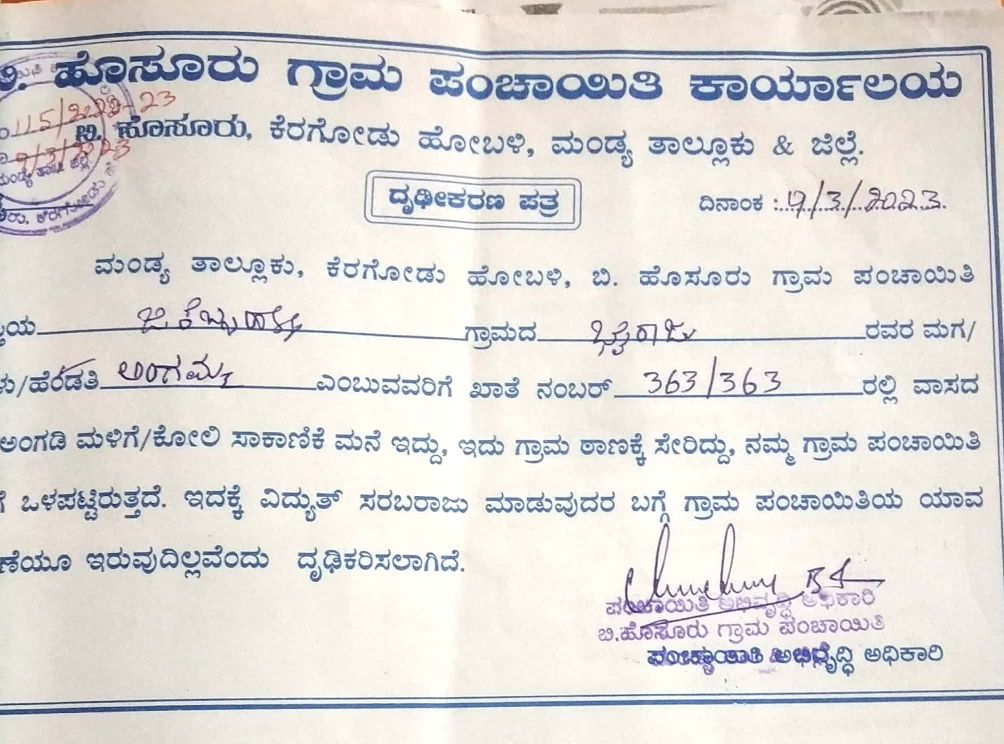 ಬಿ. ಹೊಸೂರು ಗ್ರಾಮ ಪಂಚಾಯಿತಿ ಕಾರ್ಯಾಲಯ
115/2022-23
9/3/2023
ಮಂಡ್ಯ ತಾ॥ ಜಿಲ್ಲೆ
ಬಿ. ಹೊಸೂರು, ಕೆರಗೋಡು ಹೋಬಳಿ, ಮಂಡ್ಯ ತಾಲ್ಲೂಕು & ಜಿಲ್ಲೆ.
ದೃಢೀಕರಣ ಪತ್ರ ದಿನಾಂಕ : 9/3/2023.
ಮಂಡ್ಯ ತಾಲ್ಲೂಕು, ಕೆರಗೋಡು ಹೋಬಳಿ, ಬಿ. ಹೊಸೂರು ಗ್ರಾಮ ಪಂಚಾಯಿತಿ
ಗ್ರಾಮದ ರವರ ಮಗ/
ಳು/ಹೆಂಡತಿ ಅಂಗಮ್ಮ ಎಂಬುವವರಿಗೆ ಖಾತೆ ನಂಬರ್ 363/363 ರಲ್ಲಿ ವಾಸದ
ಅಂಗಡಿ ಮಳಿಗೆ/ಕೋಲಿ ಸಾಕಾಣಿಕೆ ಮನೆ ಇದ್ದು, ಇದು ಗ್ರಾಮ ಠಾಣಕ್ಕೆ ಸೇರಿದ್ದು, ನಮ್ಮ ಗ್ರಾಮ ಪಂಚಾಯಿತಿ
ಗೆ ಒಳಪಟ್ಟಿರುತ್ತದೆ. ಇದಕ್ಕೆ ವಿದ್ಯುತ್ ಸರಬರಾಜು ಮಾಡುವುದರ ಬಗ್ಗೆ ಗ್ರಾಮ ಪಂಚಾಯಿತಿಯ ಯಾವ
ಣೆಯೂ ಇರುವುದಿಲ್ಲವೆಂದು ದೃಢಿಕರಿಸಲಾಗಿದೆ.
ಪಂಚಾಯಿತಿ ಅಭಿವೃದ್ಧಿ ಅಧಿಕಾರಿ
ಬಿ.ಹೊಸೂರು ಗ್ರಾಮ ಪಂಚಾಯಿತಿ
ಪಂಚಾಯಿತಿ ಅಭಿವೃದ್ಧಿ ಅಧಿಕಾರಿ